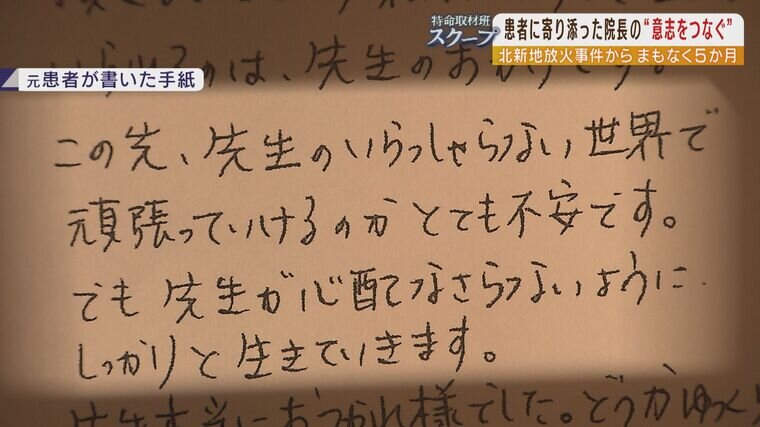 特命取材班
スクープ
患者に寄り添った院長の“意志をつなぐ”
北新地放火事件から まもなく5か月
元患者が書いた手紙
れるのは、先生のおかげです。
この先、先生のいらっしゃらない世界で
頑張っていけるのかとても不安です。
でも先生が心配なさらないように
しっかりと生きていきます。
先生本当におつかれ様でした。どうかゆっくり